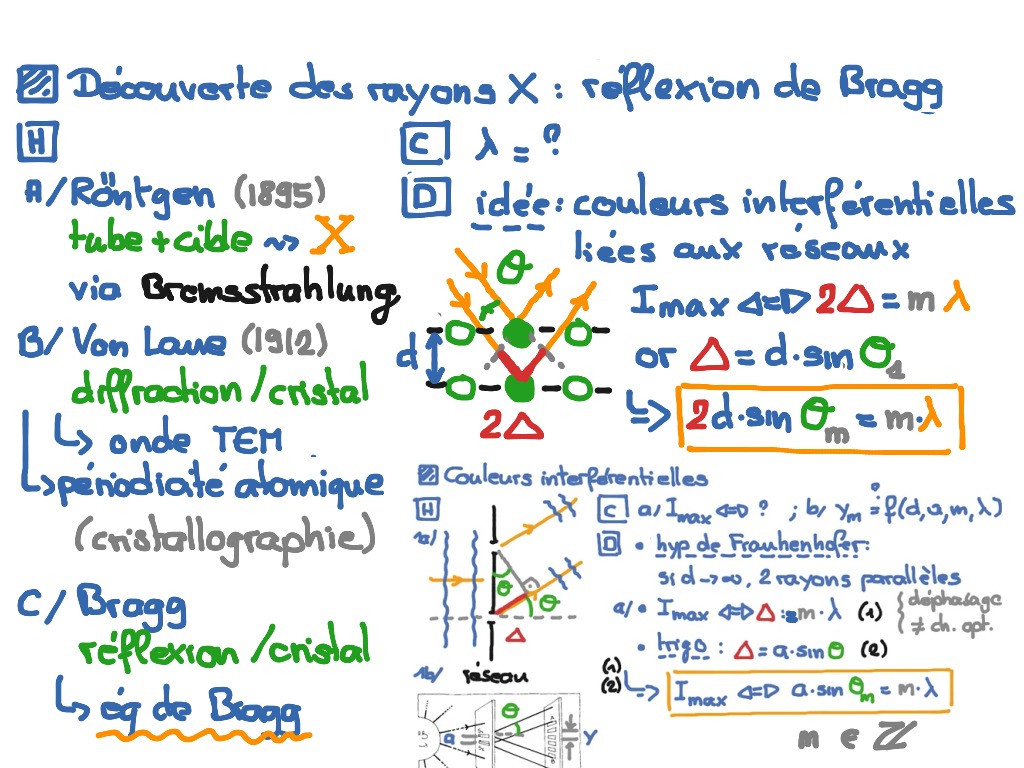 Découverte des rayons X : réflexion de Bragg
H
A/ Röntgen (1895)
tube + cible ~> X
via Bremsstrahlung
B/ Von Laue (1912)
diffraction / cristal
↳ onde TEM
↳ périodicité atomique
(cristallographie)
C/ Bragg
réflexion / cristal
↳ éq de Bragg
C λ = ?
D idée : couleurs interférentielles
liées aux réseaux
θ
d
2Δ
Imax ⇔ 2Δ = m λ
or Δ = d·sin θ1
↳> 2d·sin θm = m·λ
Couleurs interférentielles
H
1a/
θ
θ
Δ
1b/ réseau
a
θ
y
C a/ Imax ⇔ ? ; b/ ym ?= f(d, a, m, λ)
D • hyp de Frauhenhofer :
si d → ∞, 2 rayons parallèles
a/ • Imax ⇔ Δ = m·λ (1) { déphasage
≠ ch. opt.
• trigo : Δ = a·sin θ (2)
(1)
(2) ↳> Imax ⇔ a·sin θm = m·λ
m ∈ ℤ